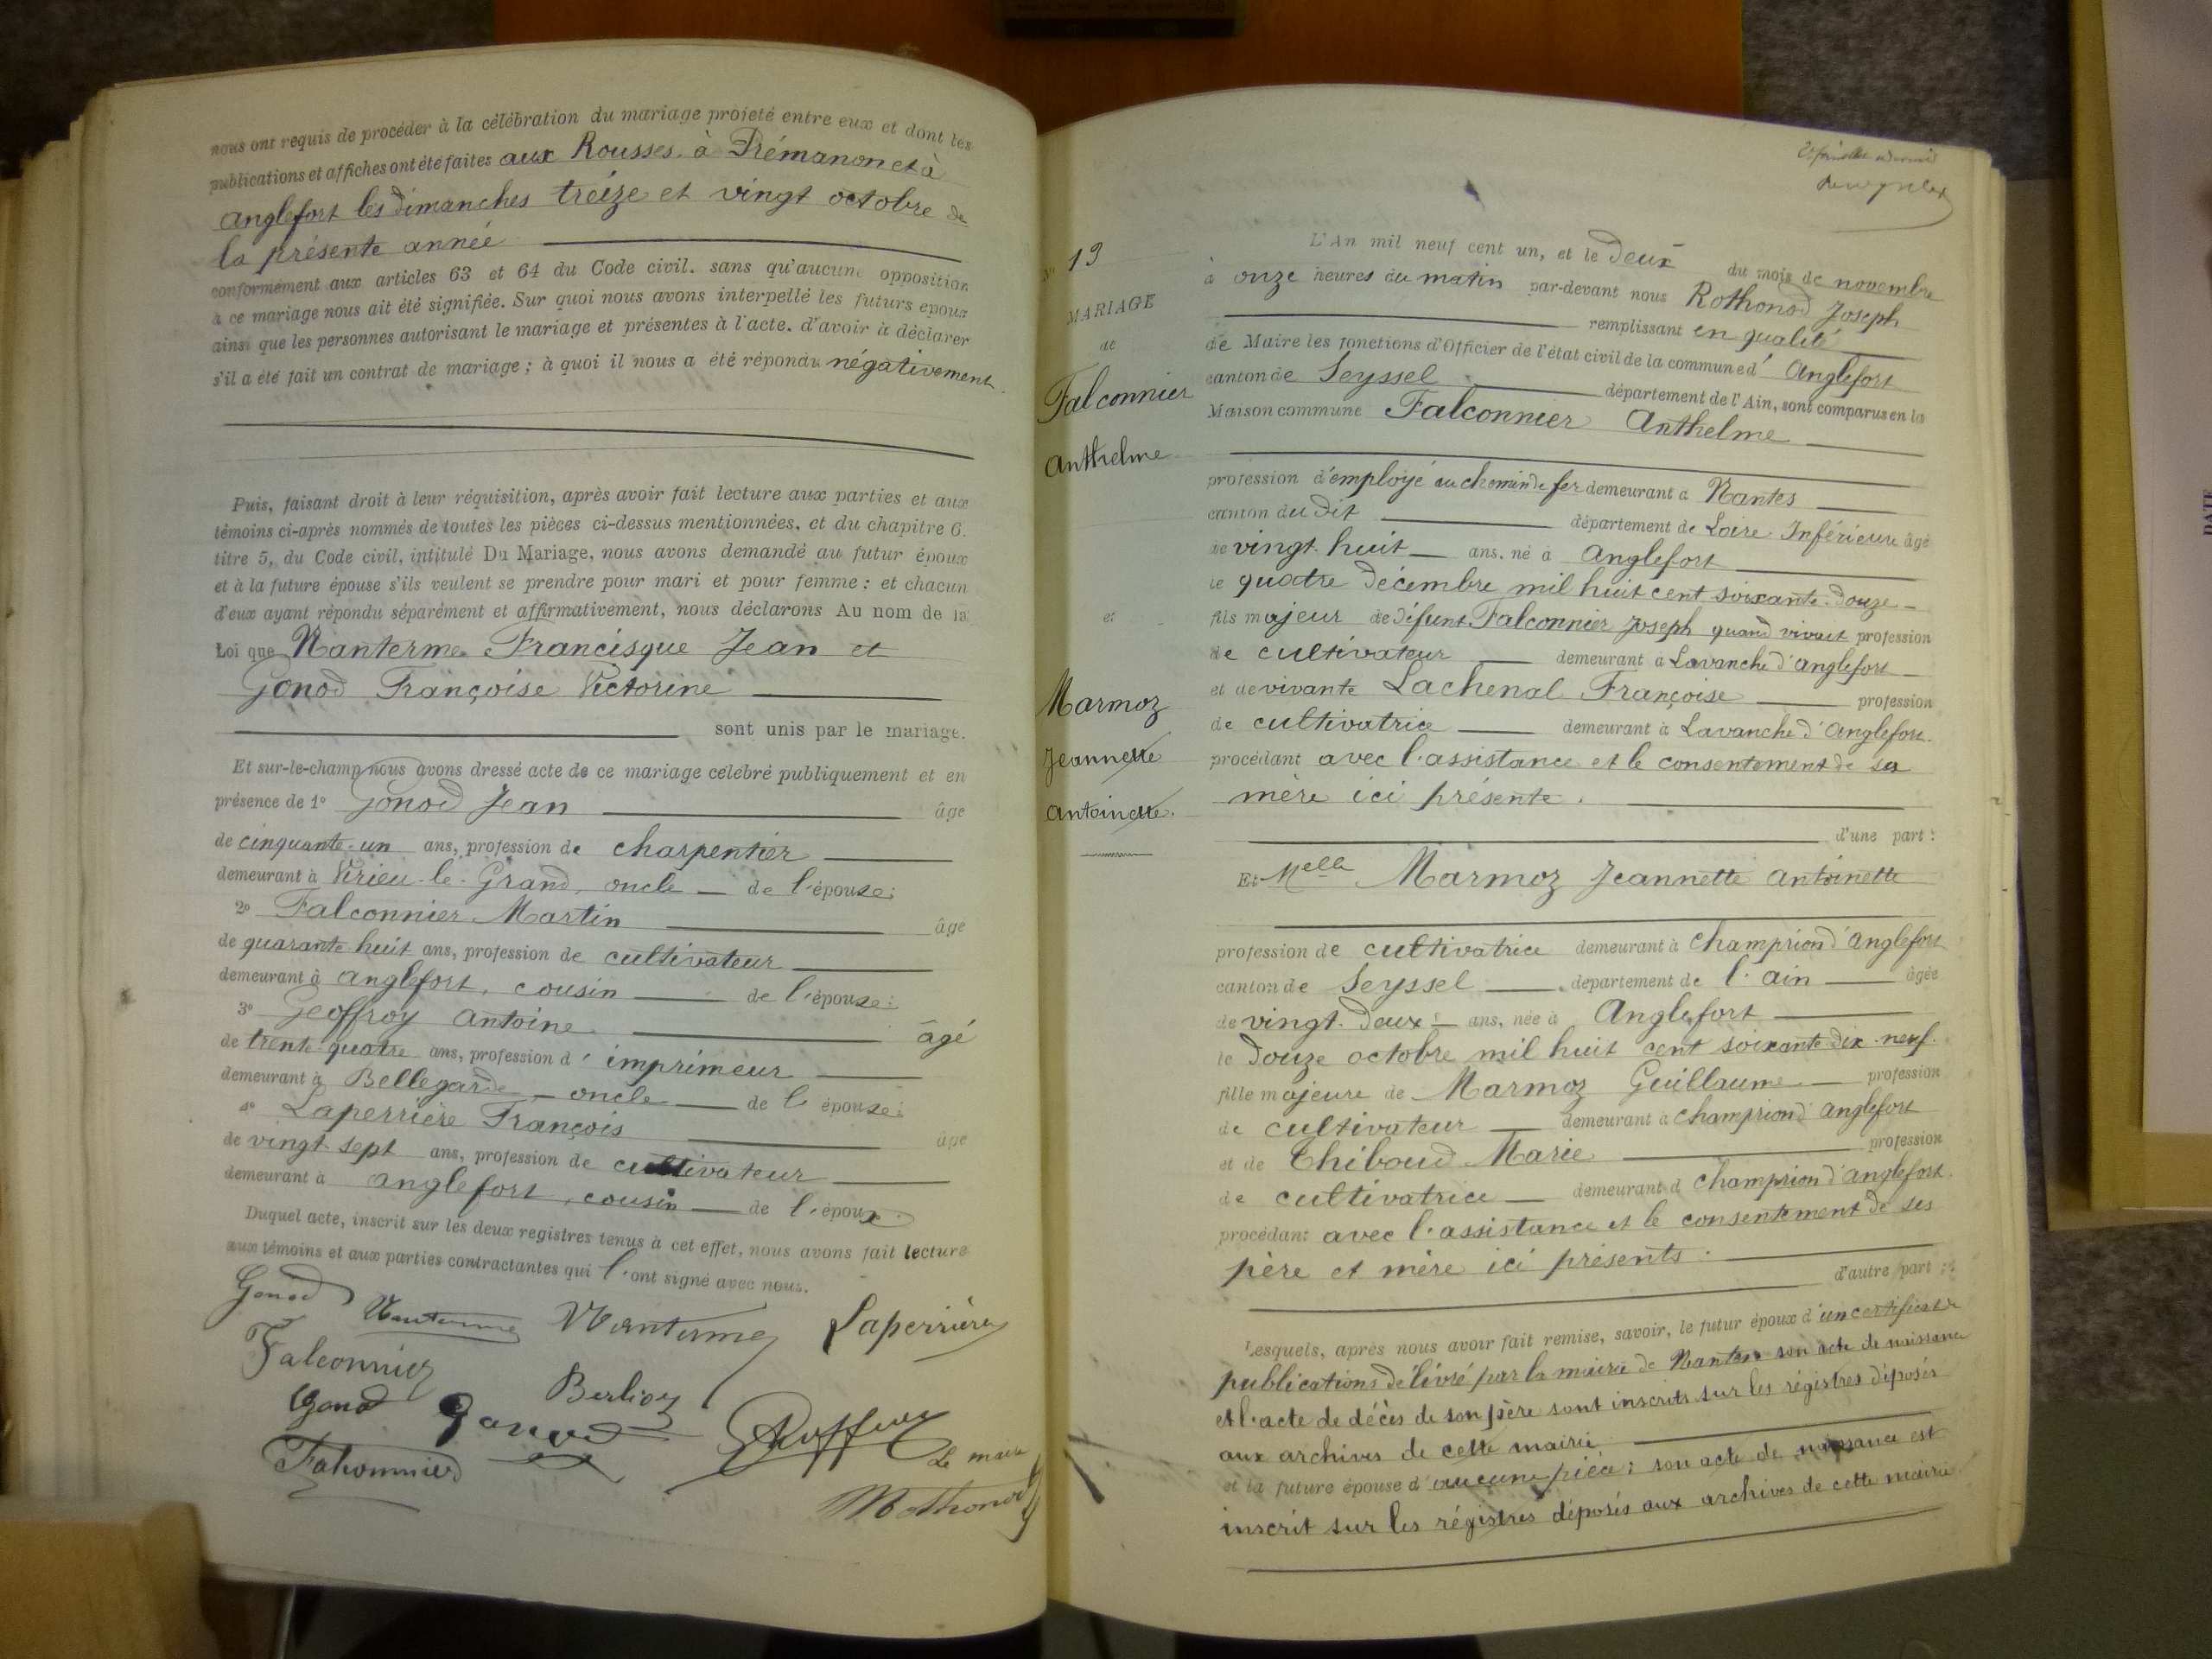 nous ont requis de procéder à la célébration du mariage projeté entre eux et dont les
publications et affiches ont été faites aux Rousses. à Prémanon et à
Anglefort les dimanches treize et vingt octobre de
la présente année
conformément aux articles 63 et 64 du Code civil. sans qu'aucune opposition
à ce mariage nous ait été signifiée. Sur quoi nous avons interpellé les futurs epoux
ainsi que les personnes autorisant le mariage et présentes à l'acte. d'avoir à déclarer
s'il a été fait un contrat de mariage ; à quoi il nous a été répondu négativement.
Puis, faisant droit à leur réquisition, après avoir fait lecture aux parties et aux
témoins ci-après nommés de toutes les pièces ci-dessus mentionnées, et du chapitre 6.
titre 5, du Code civil, intitulé Du Mariage, nous avons demandé au futur époux
et à la future épouse s'ils veulent se prendre pour mari et pour femme : et chacun
d'eux ayant répondu séparément et affirmativement, nous déclarons Au nom de la
Loi que Nanterme Francisque Jean et
Gonod Françoise Victorine
sont unis par le mariage.
Et sur-le-champ nous avons dressé acte de ce mariage célébré publiquement et en
présence de 1° Gonod Jean âgé
de cinquante-un ans, profession de charpentier
demeurant à Virieu-le-Grand, oncle de l'épouse;
2° Falconnier Martin âgé
de quarante huit ans, profession de cultivateur
demeurant à Anglefort, cousin de l'épouse;
3° Geoffroy Antoine âgé
de trente quatre ans, profession d'imprimeur
demeurant à Bellegarde oncle de l'épouse;
4° Laperrière François âgé
de vingt-sept ans, profession de cultivateur
demeurant à Anglefort, cousin de l'époux.
Duquel acte, inscrit sur les deux registres tenus à cet effet, nous avons fait lecture
aux témoins et aux parties contractantes qui l'ont signé avec nous.
Gonod Nanterme Nanterme Laperrière
Falconnier
Gonod Berlioz
Le maire
Falconnier
Rothonod
N° 13
MARIAGE
de
Falconnier
Anthelme
et
Marmoz
Jeannette
Antoinette.
L'An mil neuf cent un, et le deux du mois de novembre
à onze heures du matin par-devant nous Rothonod Joseph
remplissant en qualité
de Maire les fonctions d'Officier de l'état civil de la commune d'Anglefort
canton de Seyssel département de l'Ain, sont comparus en la
Maison commune Falconnier Anthelme
profession d'employé au chemin de fer demeurant à Nantes
canton du dit département de Loire Inférieure âgé
de vingt-huit ans. né à Anglefort
le quatre décembre mil huit cent soixante-douze
fils majeur de défunt Falconnier Joseph quand vivait profession
de cultivateur demeurant à Lavanche d'Anglefort
et de vivante Lachenal Françoise profession
de cultivatrice demeurant à Lavanche d'Anglefort.
procédant avec l'assistance et le consentement de sa
mère ici présente.
d'une part ;
Et Melle Marmoz Jeannette Antoinette
profession de cultivatrice demeurant à Champrion d'Anglefort
canton de Seyssel departement de l'Ain âgée
de vingt-deux ans, née à Anglefort
le douze octobre mil huit cent soixante-dix-neuf.
fille majeure de Marmoz Guillaume profession
de cultivateur demeurant à Champrion d'Anglefort
et de Thiboud Marie profession
de cultivatrice demeurant à Champrion d'Anglefort.
procédant avec l'assistance et le consentement de ses
père et mère ici présents.
d'autre part ;
Lesquels, après nous avoir fait remise, savoir, le futur époux d'un certificat de
publications délivré par la mairie de Nantes son acte de naissance
et l'acte de décès de son père sont inscrits sur les régistres déposés
aux archives de cette mairie
et la future épouse d'aucune pièce ; son acte de naissance est
inscrit sur les régistres déposés aux archives de cette mairie
DATE